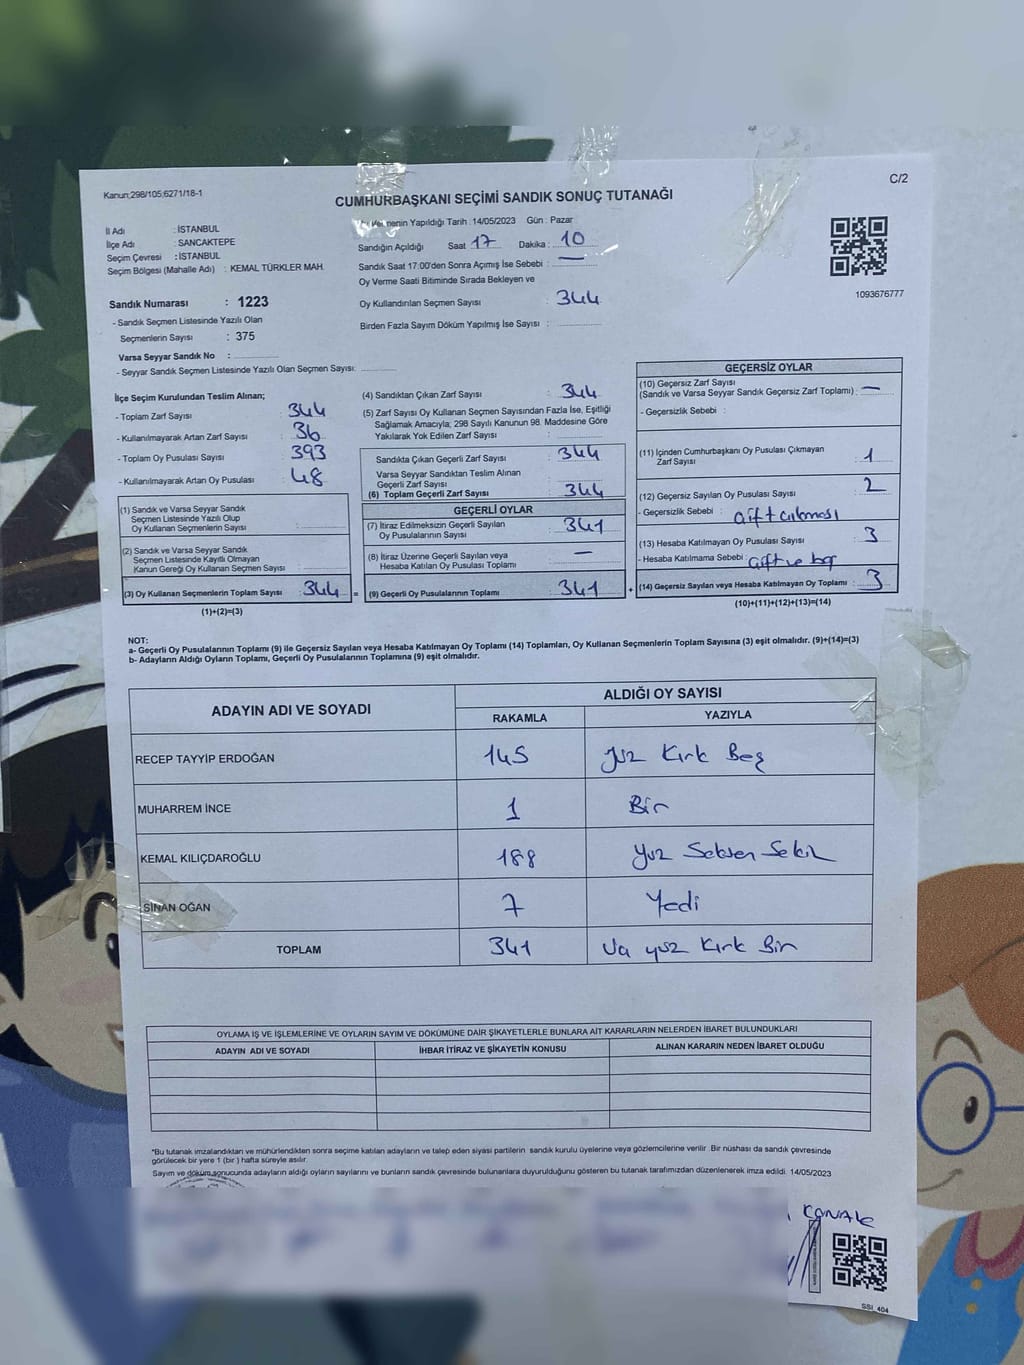 Kanun;298/105;6271/18-1
C/2
CUMHURBAŞKANI SEÇİMİ SANDIK SONUÇ TUTANAĞI
Yapıldığı Tarih : 14/05/2023 Gün : Pazar
İl Adı : İSTANBUL
İlçe Adı : SANCAKTEPE
Seçim Çevresi : İSTANBUL
Seçim Bölgesi (Mahalle Adı) : KEMAL TÜRKLER MAH.
Sandığın Açıldığı Saat 17 Dakika : 10
Sandık Saat 17:00'den Sonra Açımış İse Sebebi : —
Oy Verme Saati Bitiminde Sırada Bekleyen ve
Oy Kullandırılan Seçmen Sayısı : 344
Birden Fazla Sayım Döküm Yapılmış İse Sayısı :
1093676777
Sandık Numarası : 1223
- Sandık Seçmen Listesinde Yazılı Olan
Seçmenlerin Sayısı : 375
Varsa Seyyar Sandık No :
- Seyyar Sandık Seçmen Listesinde Yazılı Olan Seçmen Sayısı:
İlçe Seçim Kurulundan Teslim Alınan;
- Toplam Zarf Sayısı : 344
- Kullanılmayarak Artan Zarf Sayısı : 36
- Toplam Oy Pusulası Sayısı : 393
- Kullanılmayarak Artan Oy Pusulası : 48
(1) Sandık ve Varsa Seyyar Sandık
Seçmen Listesinde Yazılı Olup
Oy Kullanan Seçmenlerin Sayısı :
(2) Sandık ve Varsa Seyyar Sandık
Seçmen Listesinde Kayıtlı Olmayan
Kanun Gereği Oy Kullanan Seçmen Sayısı :
(3) Oy Kullanan Seçmenlerin Toplam Sayısı : 344 =
(1)+(2)=(3)
(4) Sandıktan Çıkan Zarf Sayısı : 344
(5) Zarf Sayısı Oy Kullanan Seçmen Sayısından Fazla İse, Eşitliği
Sağlamak Amacıyla; 298 Sayılı Kanunun 98. Maddesine Göre
Yakılarak Yok Edilen Zarf Sayısı :
Sandıkta Çıkan Geçerli Zarf Sayısı : 344
Varsa Seyyar Sandıktan Teslim Alınan
Geçerli Zarf Sayısı :
(6) Toplam Geçerli Zarf Sayısı : 344
GEÇERLİ OYLAR
(7) İtiraz Edilmeksizin Geçerli Sayılan
Oy Pusulalarının Sayısı : 341
(8) İtiraz Üzerine Geçerli Sayılan veya
Hesaba Katılan Oy Pusulası Toplamı : —
(9) Geçerli Oy Pusulalarının Toplamı : 341 +
GEÇERSİZ OYLAR
(10) Geçersiz Zarf Sayısı
(Sandık ve Varsa Seyyar Sandık Geçersiz Zarf Toplamı) : —
- Geçersizlik Sebebi :
(11) İçinden Cumhurbaşkanı Oy Pusulası Çıkmayan
Zarf Sayısı : 1
(12) Geçersiz Sayılan Oy Pusulası Sayısı : 2
- Geçersizlik Sebebi : çift çıkması
(13) Hesaba Katılmayan Oy Pusulası Sayısı : 3
- Hesaba Katılmama Sebebi : çift ve boş
(14) Geçersiz Sayılan veya Hesaba Katılmayan Oy Toplamı : 3
(10)+(11)+(12)+(13)=(14)
NOT:
a- Geçerli Oy Pusulalarının Toplamı (9) ile Geçersiz Sayılan veya Hesaba Katılmayan Oy Toplamı (14) Toplamları, Oy Kullanan Seçmenlerin Toplam Sayısına (3) eşit olmalıdır. (9)+(14)=(3)
b- Adayların Aldığı Oyların Toplamı, Geçerli Oy Pusulalarının Toplamına (9) eşit olmalıdır.
ADAYIN ADI VE SOYADI ALDIĞI OY SAYISI
RAKAMLA YAZIYLA
RECEP TAYYİP ERDOĞAN 145 yüz Kırk Beş
MUHARREM İNCE 1 Bir
KEMAL KILIÇDAROĞLU 188 Yüz Seksen Sekiz
SİNAN OĞAN 7 Yedi
TOPLAM 341 Üç yüz Kırk Bir
OYLAMA İŞ VE İŞLEMLERİNE VE OYLARIN SAYIM VE DÖKÜMÜNE DAİR ŞİKAYETLERLE BUNLARA AİT KARARLARIN NELERDEN İBARET BULUNDUKLARI
ADAYIN ADI VE SOYADI İHBAR İTİRAZ VE ŞİKAYETİN KONUSU ALINAN KARARIN NEDEN İBARET OLDUĞU
*Bu tutanak imzalandıktan ve mühürlendikten sonra seçime katılan adayların ve talep eden siyasi partilerin sandık kurulu üyelerine veya gözlemcilerine verilir. Bir nüshası da sandık çevresinde
görülecek bir yere 1 (bir ) hafta süreyle asılır.
Sayım ve döküm sonucunda adayların aldığı oyların sayılarını ve bunların sandık çevresinde bulunanlara duyurulduğunu gösteren bu tutanak tarafımızdan düzenlenerek imza edildi. 14/05/2023
SSİ_404